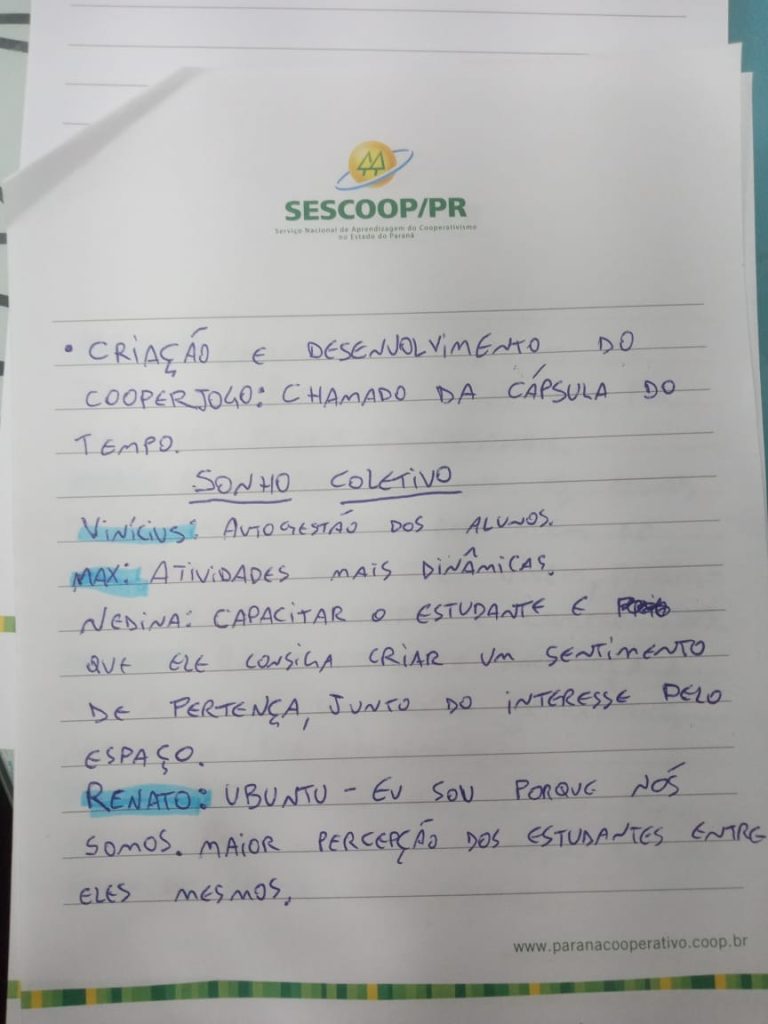 SESCOOP/PR
Serviço Nacional de Aprendizagem do Cooperativismo
no Estado do Paraná
• CRIAÇÃO E DESENVOLVIMENTO DO
COOPERJOGO: CHAMADO DA CÁPSULA DO
TEMPO.
SONHO COLETIVO
VINÍCIUS: AUTOGESTÃO DOS ALUNOS.
MAX: ATIVIDADES MAIS DINÂMICAS.
NEDINA: CAPACITAR O ESTUDANTE E
QUE ELE CONSIGA CRIAR UM SENTIMENTO
DE PERTENÇA, JUNTO DO INTERESSE PELO
ESPAÇO.
RENATO: UBUNTU - EU SOU PORQUE NÓS
SOMOS. MAIOR PERCEPÇÃO DOS ESTUDANTES ENTRE
ELES MESMOS,
www.paranacooperativo.coop.br